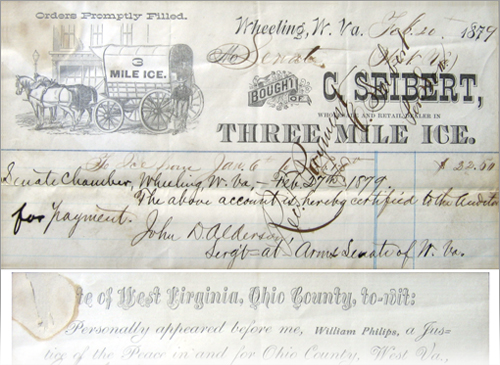 Orders Promptly Filled.
Wheeling, W. Va. Feb. 20 1879
Senate
3
MILE ICE.
BOUGHT OF C. SEIBERT,
WHOLESALE AND RETAIL DEALER IN
THREE MILE ICE.
To Ice from Jan. 6th $ 22.50
Senate Chamber, Wheeling, W. Va, - Feb. 27th 1879
The above account is hereby certified to the Auditor
for payment.
John D Alderson
Serg't-at Arms Senate of W. Va.
te of West Virginia, Ohio County, to-wit:
Personally appeared before me, William Philips, a Jus-
tice of the Peace in and for Ohio County, West Va.,